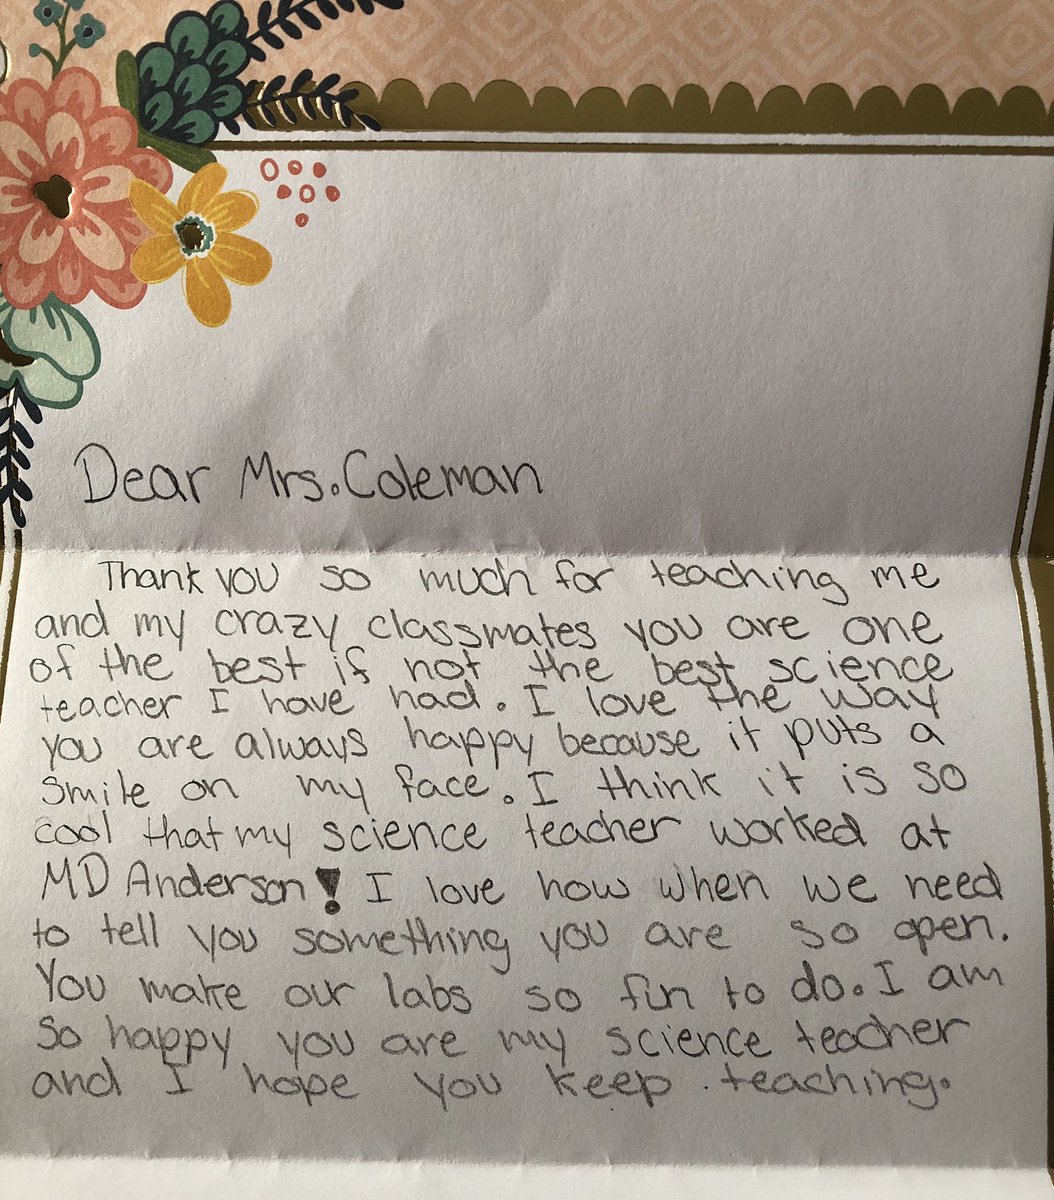 Dear Mrs. Coleman
Thank you so much for teaching me
and my crazy classmates you are one
of the best if not the best science
teacher I have had. I love the way
you are always happy because it puts a
smile on my face. I think it is so
cool that my science teacher worked at
MD Anderson! I love how when we need
to tell you something you are so open.
You make our labs so fun to do. I am
so happy you are my science teacher
and I hope you keep teaching.